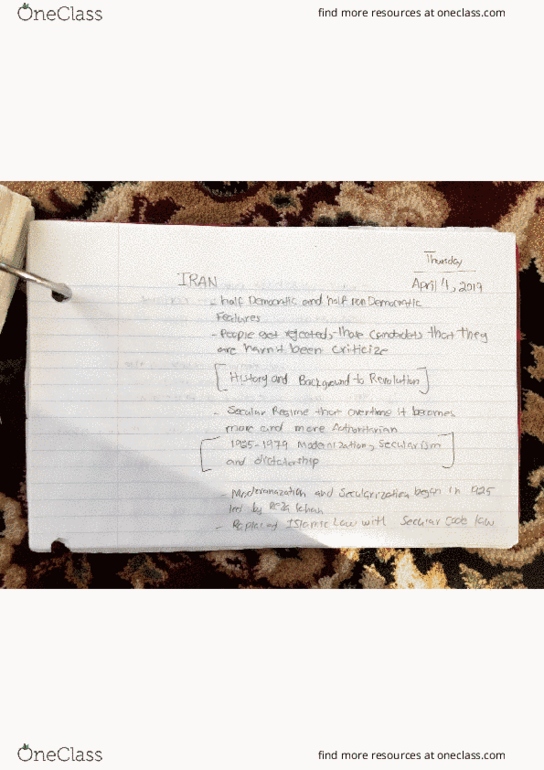 OneClass
find more resources at oneclass.com
Thursday
IRAN
April 4, 2019
- half Democratic and half non Democratic
Features
- People get rejected, those candidates that they
are harmt been criticize
[History and Background to Revolution]
- Secular Regime that overtime it becomes
more and more Authoritarian
[1925-1979 Modernization, Secularism
and dictatorship]
- Modernazation and Secularization began in 1925
led by Reza Khan
- Replacing Islamic Law with Secular Code law
OneClass
find more resources at oneclass.com